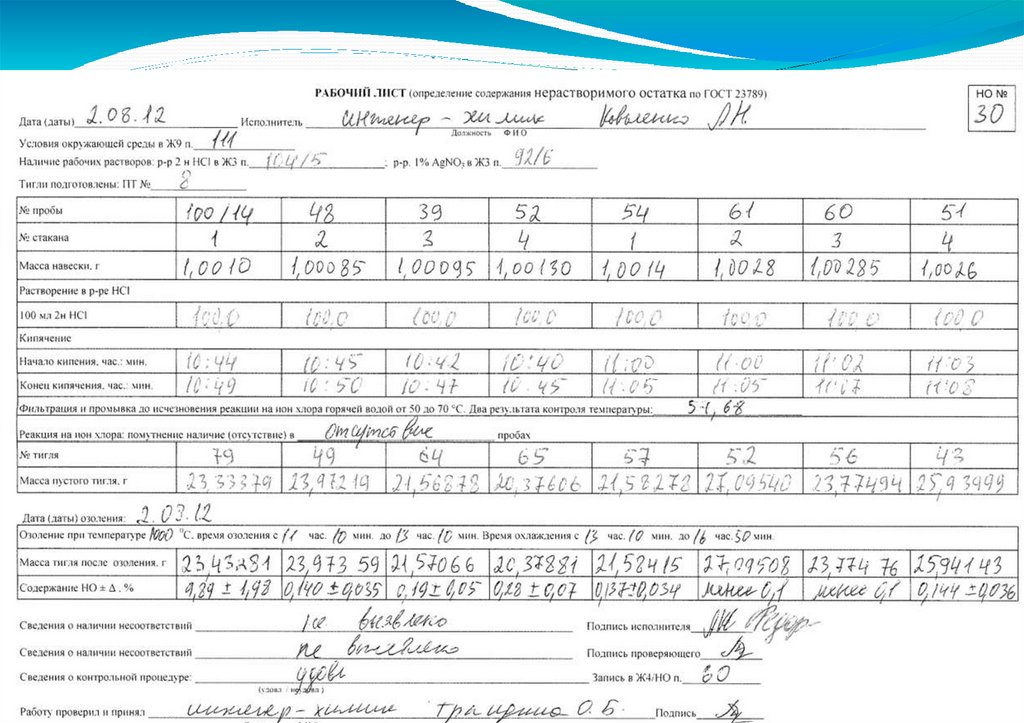 РАБОЧИЙ ЛИСТ (определение содержания нерастворимого остатка по ГОСТ 23789)
НО №
30
Дата (даты) 2.08.12 Исполнитель инженер - химик Коваленко Л.Н.
Должность Ф И О
Условия окружающей среды в Ж9 п. 111
Наличие рабочих растворов: р-р 2 н HCl в Ж3 п. 104/5 ; р-р. 1% AgNO3 в Ж3 п. 92/6
Тигли подготовлены: ПТ № 8
№ пробы 100/14 48 39 52 54 61 60 51
№ стакана 1 2 3 4 1 2 3 4
Масса навески, г 1,0010 1,00085 1,00095 1,00130 1,0014 1,0028 1,00285 1,0026
Растворение в р-ре HCl
100 мл 2н HCl 100,0 100,0 100,0 100,0 100,0 100,0 100,0 100,0
Кипячение
Начало кипения, час.: мин. 10:44 10:45 10:42 10:40 11:00 11:00 11:02 11:03
Конец кипячения, час.: мин. 10:49 10:50 10:47 10:45 11:05 11:05 11:07 11:08
Фильтрация и промывка до исчезновения реакции на ион хлора горячей водой от 50 до 70 °С. Два результата контроля температуры: 51, 68
Реакция на ион хлора: помутнение наличие (отсутствие) в отсутствие пробах
№ тигля 79 49 64 65 57 52 56 43
Масса пустого тигля, г 23,33379 23,97219 21,56878 20,37606 21,58278 27,09540 23,77494 25,93999
Дата (даты) озоления: 2.03.12
Озоление при температуре 1000 °С. время озоления с 11 час. 10 мин. до 13 час. 10 мин. Время охлаждения с 13 час. 10 мин. до 16 час. 30 мин.
Масса тигля после озоления, г 23,43281 23,973 59 21,57066 20,37881 21,58415 27,09508 23,774 76 25941 43
Содержание НО ± Δ , % 9,89 ± 1,98 0,140 ± 0,035 0,19 ± 0,05 0,28 ± 0,07 0,137±0,034 менее 0,1 менее 0,1 0,144 ± 0,036
Сведения о наличии несоответствий не выявлено Подпись исполнителя
Сведения о наличии несоответствий не выявлено Подпись проверяющего
Сведения о контрольной процедуре: удовл Запись в Ж4/НО п. 30
(удовл / неудовл)
Работу проверил и принял инженер - химик О.Б. Подпись